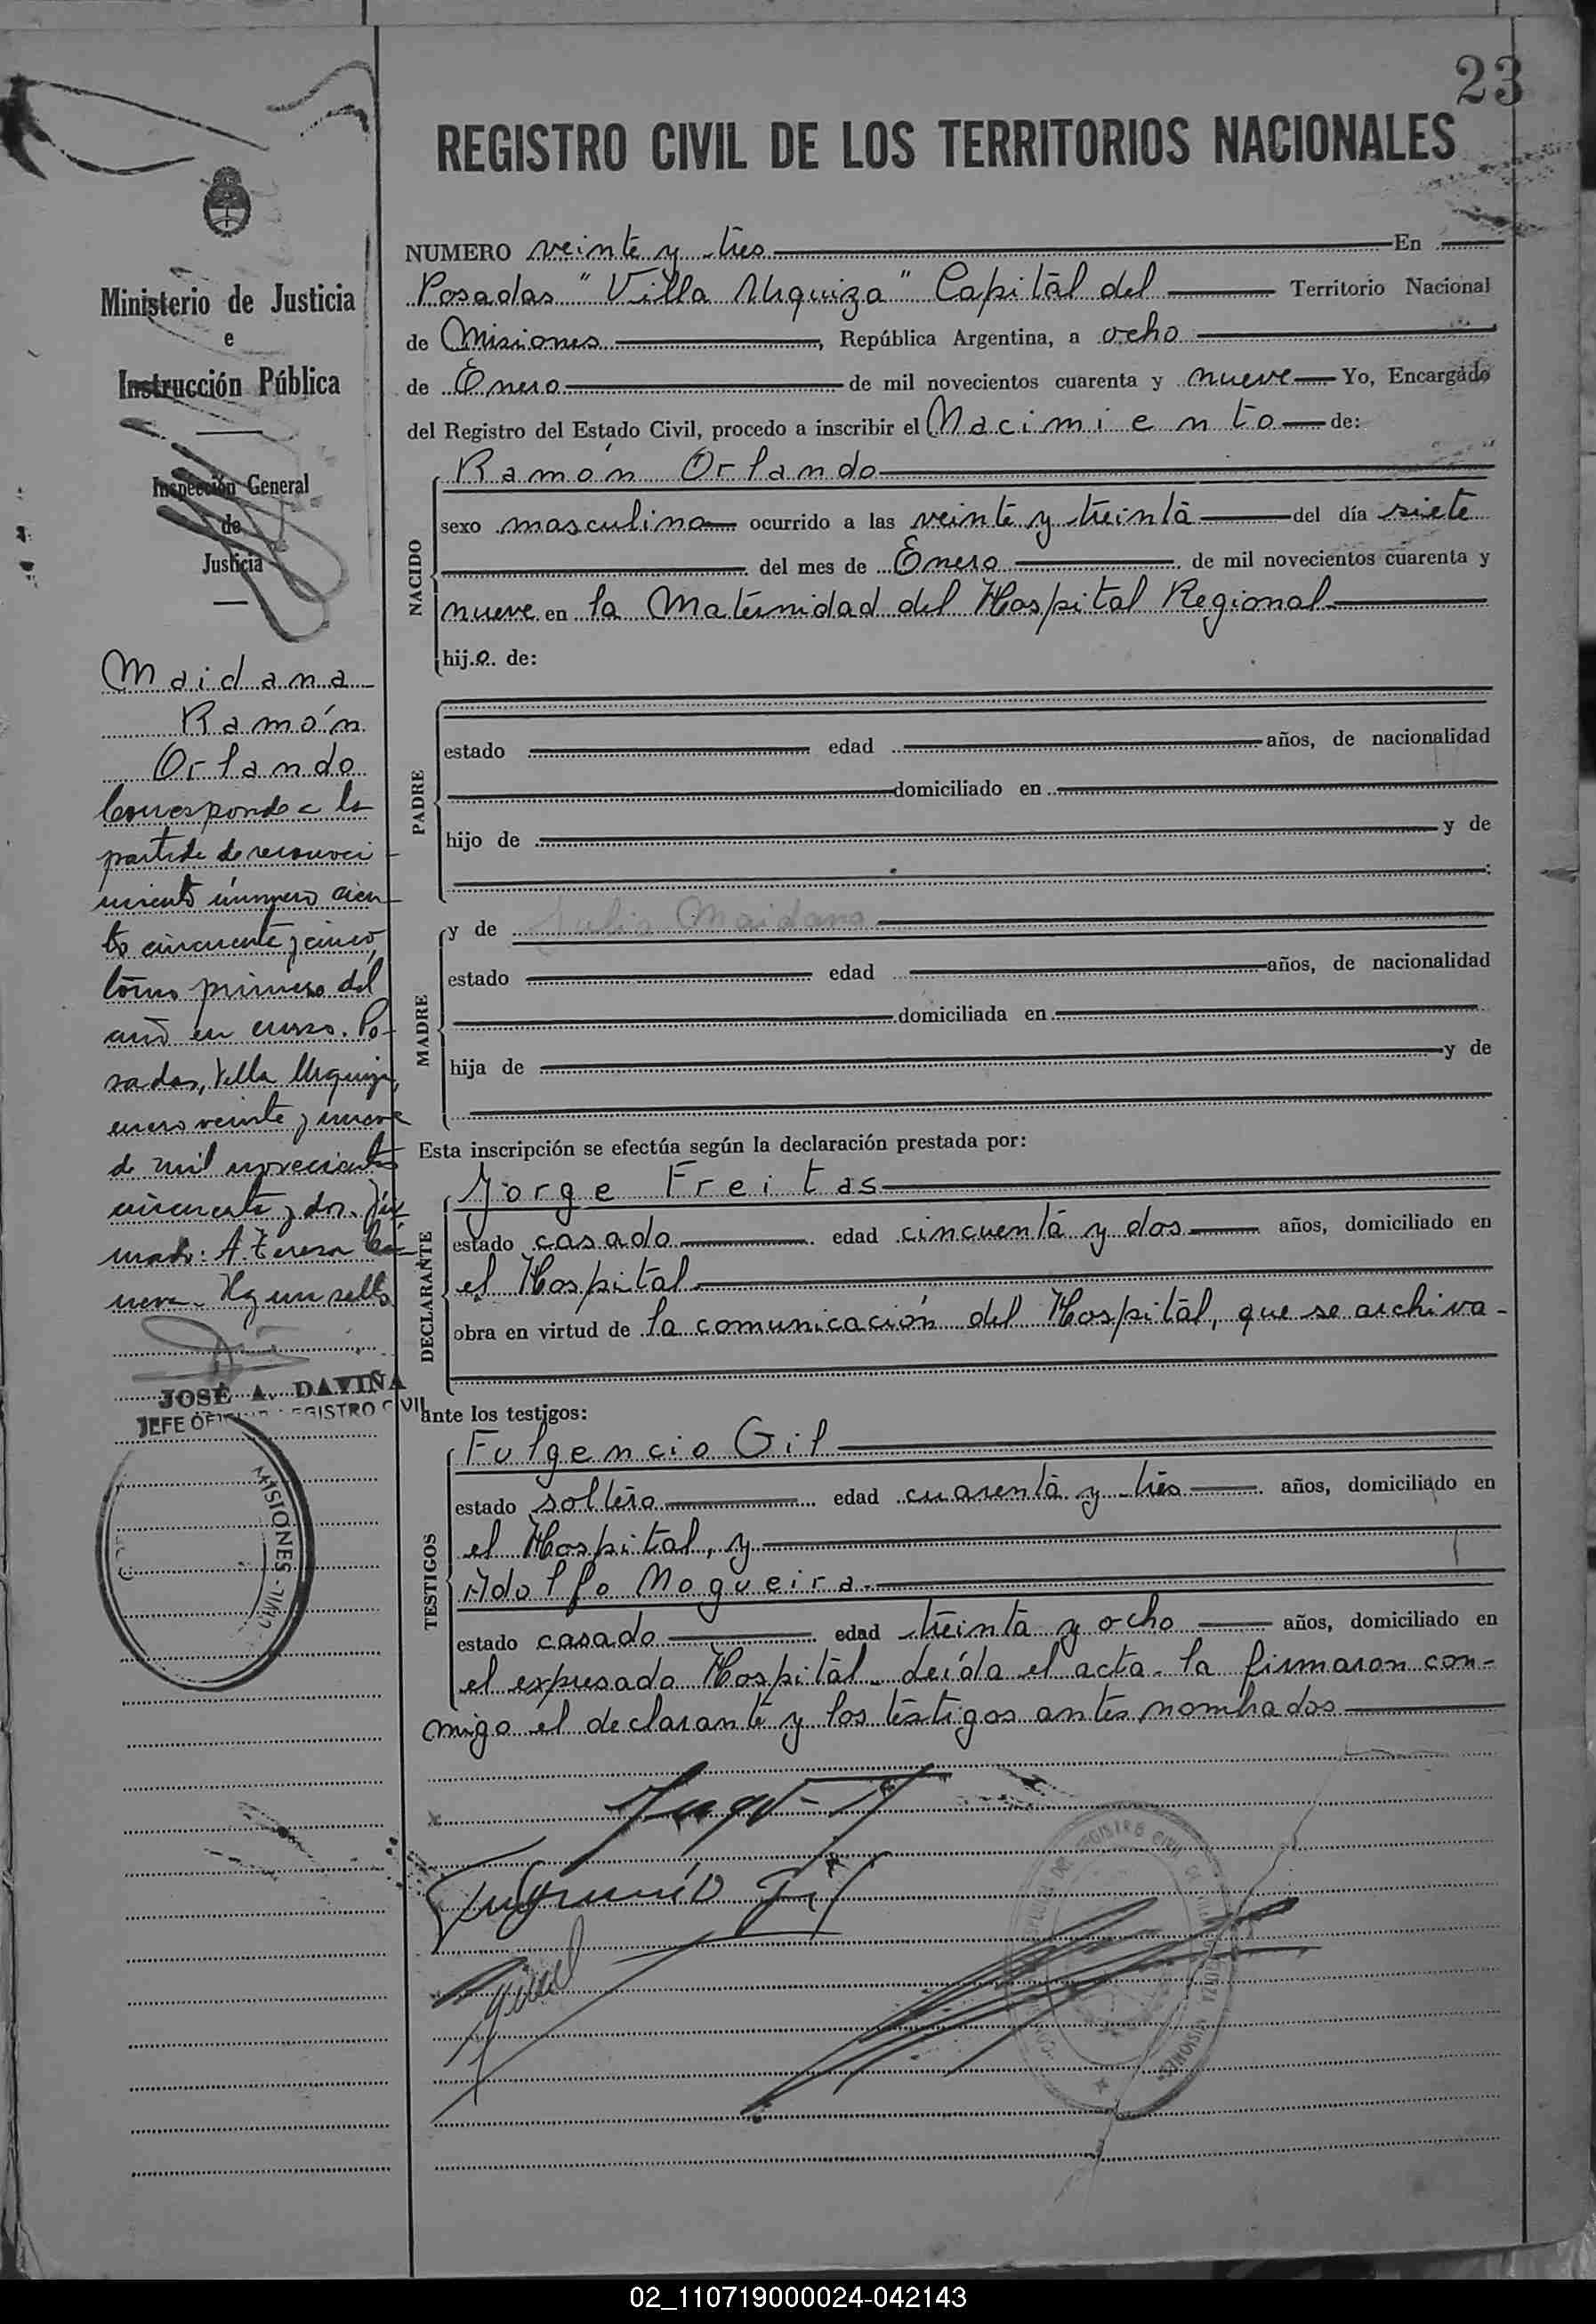 23
REGISTRO CIVIL DE LOS TERRITORIOS NACIONALES
Ministerio de Justicia
e
Instrucción Pública
Inspección General
de
Justicia
Maidana
Ramón
Orlando
Corresponde a la
partida de reconoci-
miento número cien-
to cincuenta y cinco,
tomo primero del
año en curso. Po-
sadas, Villa Urquiza,
enero veinte y nueve
de mil novecientos
cincuenta y dos. Fir-
mado: A. Teresa
Hay un sello
JOSÉ A. DAVIÑA
JEFE REGISTRO CIVIL
MISIONES
NUMERO veinte y tres En
Posadas "Villa Urquiza" Capital del Territorio Nacional
de Misiones, República Argentina, a ocho
de Enero de mil novecientos cuarenta y nueve Yo, Encargado
del Registro del Estado Civil, procedo a inscribir el Nacimiento de:
NACIDO
Ramón Orlando
sexo masculino ocurrido a las veinte y treinta del día siete
del mes de Enero de mil novecientos cuarenta y
nueve en la Maternidad del Hospital Regional
hijo de:
PADRE
estado edad años, de nacionalidad
domiciliado en
hijo de y de
MADRE
y de Julia Maidana
estado edad años, de nacionalidad
domiciliada en
hija de y de
Esta inscripción se efectúa según la declaración prestada por:
DECLARANTE
Jorge Freitas
estado casado edad cincuenta y dos años, domiciliado en
el Hospital
obra en virtud de la comunicación del Hospital, que se archiva-
ante los testigos:
TESTIGOS
Fulgencio Gil
estado soltero edad cuarenta y tres años, domiciliado en
el Hospital, y
Adolfo Nogueira
estado casado edad treinta y ocho años, domiciliado en
el expresado Hospital. Leída el acta la firmaron con-
migo el declarante y los testigos antes nombrados
Fulgencio Gil
REGISTRO CIVIL
MISIONES
02_110719000024-042143